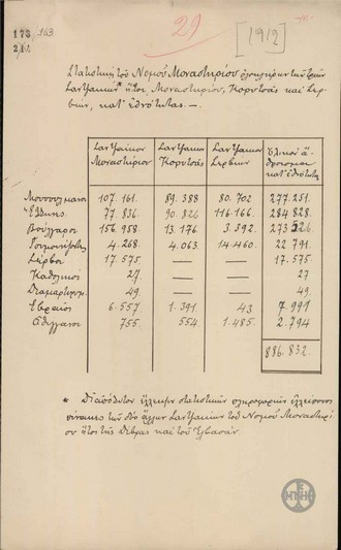 173 163
211.
29
[1912]
Στατιστικὴ τοῦ Νομοῦ Μοναστηρίου ὁλοκλήρων τῶν τριῶν
Σαντζακίων* ἤτοι Μοναστηρίου, Κορυτσᾶς καὶ Σερ-
βίων, κατ' ἐθνότητας. —
Σαντζάκιον Μοναστηρίου Σαντζάκιον Κορυτσᾶς Σαντζάκιον Σερβίων Ὁλικὸν ἄ-θροισμα κατ' ἐθνότητα
Μουσουλμάνοι 107.161. 89.388 80.702 277.251.
Ἕλληνες 77.836. 90.826 116.166. 284.828.
Βούλγαροι 156.958 13.176 3.392 273.526
4.268. 4.063. 14.460. 22.791.
Σέρβοι 17.575 — — 17.575.
Καθολικοὶ 27. — — 27
Διαμαρτυρόμ. 49. — — 49.
Ἑβραῖοι 6.557 1.391 43 7.991
Ἀθίγγανοι 755. 554 1.485. 2.794
886.832.
* Δι' ἀπόλυτον ἔλλειψιν στατιστικῶν πληροφοριῶν ἐλλείπουσι
πίνακες τῶν δύο ἄλλων Σαντζακίων τοῦ Νομοῦ Μοναστηρί-
ου ἤτοι τῆς Δίβρας καὶ τοῦ Ἐλβασάν.